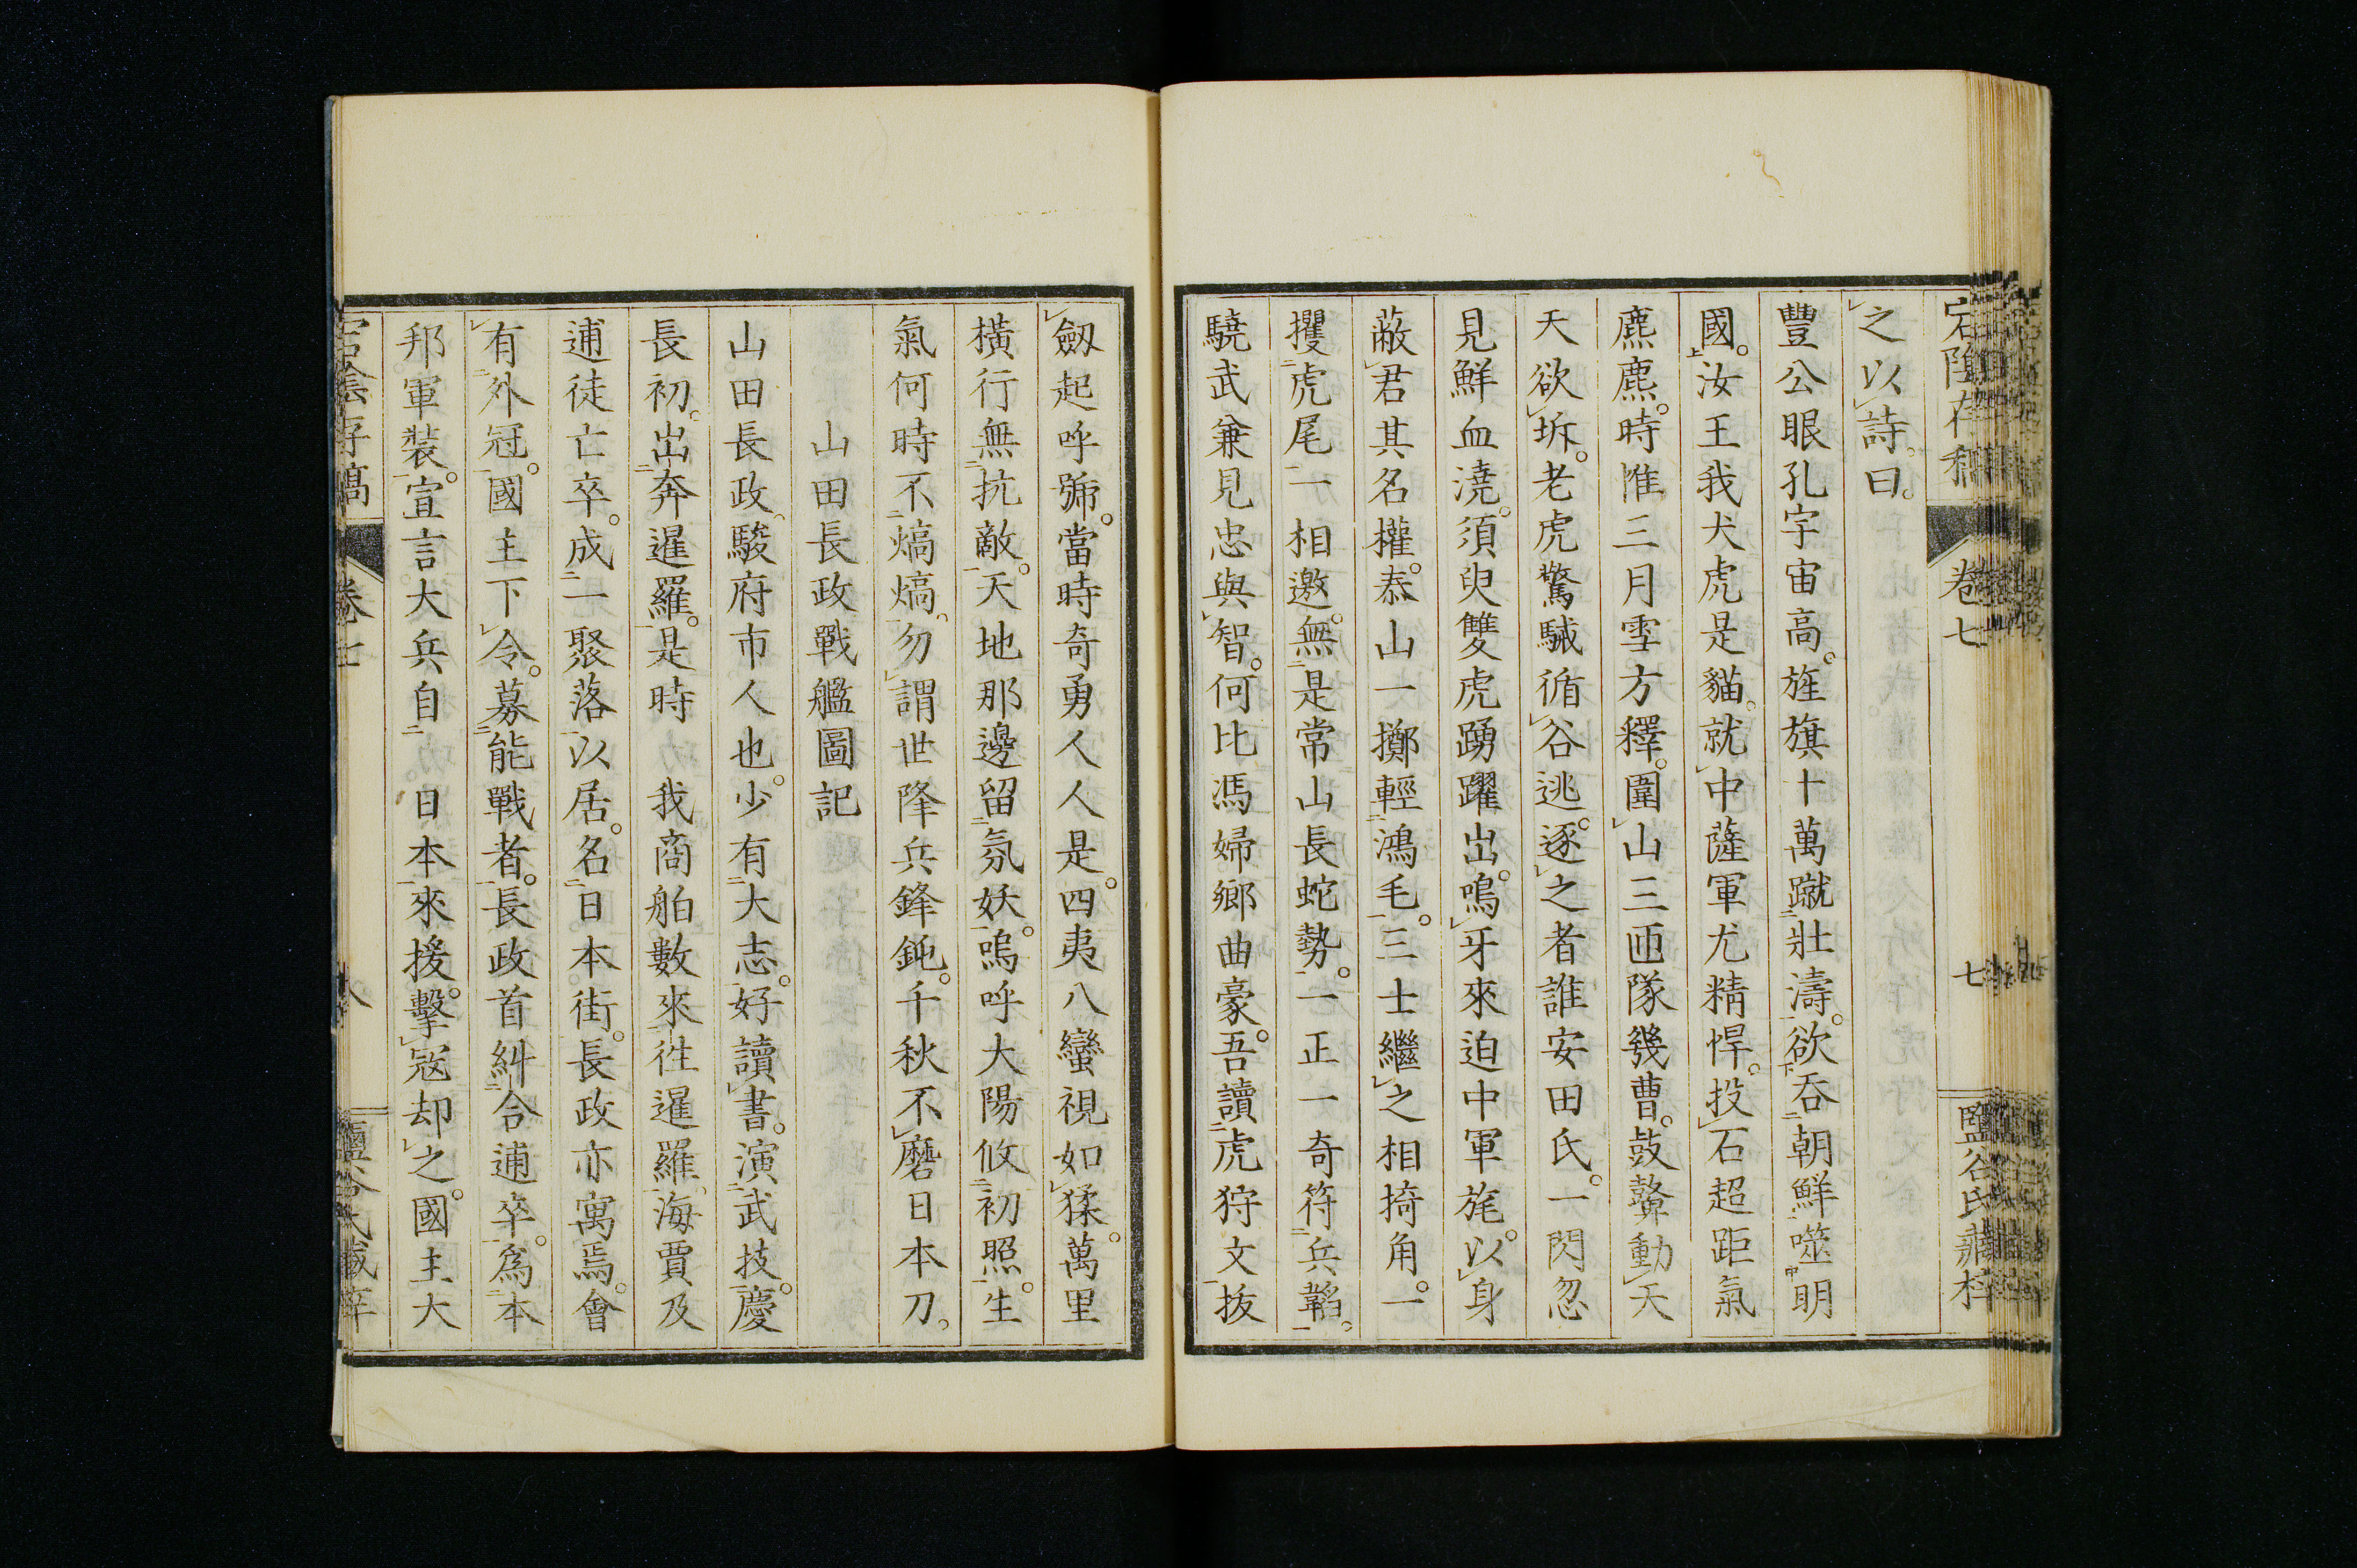 宕陰存稿 卷七 七 鹽谷氏藏梓
之以詩。曰。
豐公眼孔宇宙高。旌旗十萬蹴壯濤。欲呑朝鮮噬明
國。汝王我犬虎是貓。就中薩軍尤精悍。投石超距氣
麃麃。時惟三月雪方釋。圍山三匝隊幾曹。鼓鼙動天
天欲坼。老虎驚駴循谷逃。逐之者誰安田氏。一閃忽
見鮮血澆。須臾雙虎踴躍出。鳴牙來迫中軍旄。以身
蔽君其名權。泰山一擲輕鴻毛。三士繼之相掎角。一
攫虎尾一相邀。無是常山長蛇勢。一正一奇符兵韜。
驍武兼見忠與智。何比馮婦鄉曲豪。吾讀虎狩文抜
劔起呼號。當時奇勇人人是。四夷八蠻視如猱。萬里
橫行無抗敵。天地那邊留氛妖。嗚呼大陽攸初照。生
氣何時不熇熇。勿謂世降兵鋒鈍。千秋不磨日本刀。
山田長政戰艦圖記
山田長政、駿府市人也。少有大志。好讀書。演武技。慶
長初。出奔暹羅。是時 我商舶數來徃暹羅。海賈及
逋徒亡卒。成一聚落以居。名日本街。長政亦寓焉。會
有外冦。國主下令。募能戰者。長政首糾合逋卒。爲本
邦軍裝。宣言大兵自 日本來援。擊冦却之。國主大
宕陰存稿 卷七 八 鹽谷氏藏梓